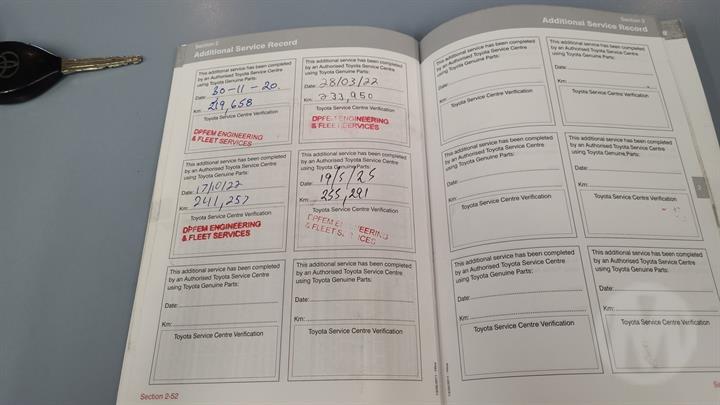 Section 2
Additional Service Record
This additional service has been completed
by an Authorised Toyota Service Centre
using Toyota Genuine Parts:
Date: 30-11-20.
Km: 219,658
Toyota Service Centre Verification
DPFEM ENGINEERING
& FLEET SERVICES
This additional service has been completed
by an Authorised Toyota Service Centre
using Toyota Genuine Parts:
Date: 28/03/22
Km: 233,950
Toyota Service Centre Verification
DPFEM ENGINEERING
& FLEET SERVICES
This additional service has been completed
by an Authorised Toyota Service Centre
using Toyota Genuine Parts:
Date: 17/10/22
Km: 241,257
Toyota Service Centre Verification
DPFEM ENGINEERING
& FLEET SERVICES
This additional service has been completed
by an Authorised Toyota Service Centre
using Toyota Genuine Parts:
Date: 19/5/25
Km: 255,291
Toyota Service Centre Verification
DPFEM ENGINEERING
& FLEET SERVICES
This additional service has been completed
by an Authorised Toyota Service Centre
using Toyota Genuine Parts:
Date:
Km:
Toyota Service Centre Verification
This additional service has been completed
by an Authorised Toyota Service Centre
using Toyota Genuine Parts:
Date:
Km:
Toyota Service Centre Verification
Section 2-52
Section 2
Additional Service Record
This additional service has been completed
by an Authorised Toyota Service Centre
using Toyota Genuine Parts:
Date:
Km:
Toyota Service Centre Verification
This additional service has been completed
by an Authorised Toyota Service Centre
using Toyota Genuine Parts:
Date:
Km:
Toyota Service Centre Verification
This additional service has been completed
by an Authorised Toyota Service Centre
using Toyota Genuine Parts:
Date:
Km:
Toyota Service Centre Verification
This additional service has been completed
by an Authorised Toyota Service Centre
using Toyota Genuine Parts:
Date:
Km:
Toyota Service Centre Verification
2
This additional service has been completed
by an Authorised Toyota Service Centre
using Toyota Genuine Parts:
Date:
Km:
Toyota Service Centre Verification
This additional service has been completed
by an Authorised Toyota Service Centre
using Toyota Genuine Parts:
Date:
Km:
Toyota Service Centre Verification
M